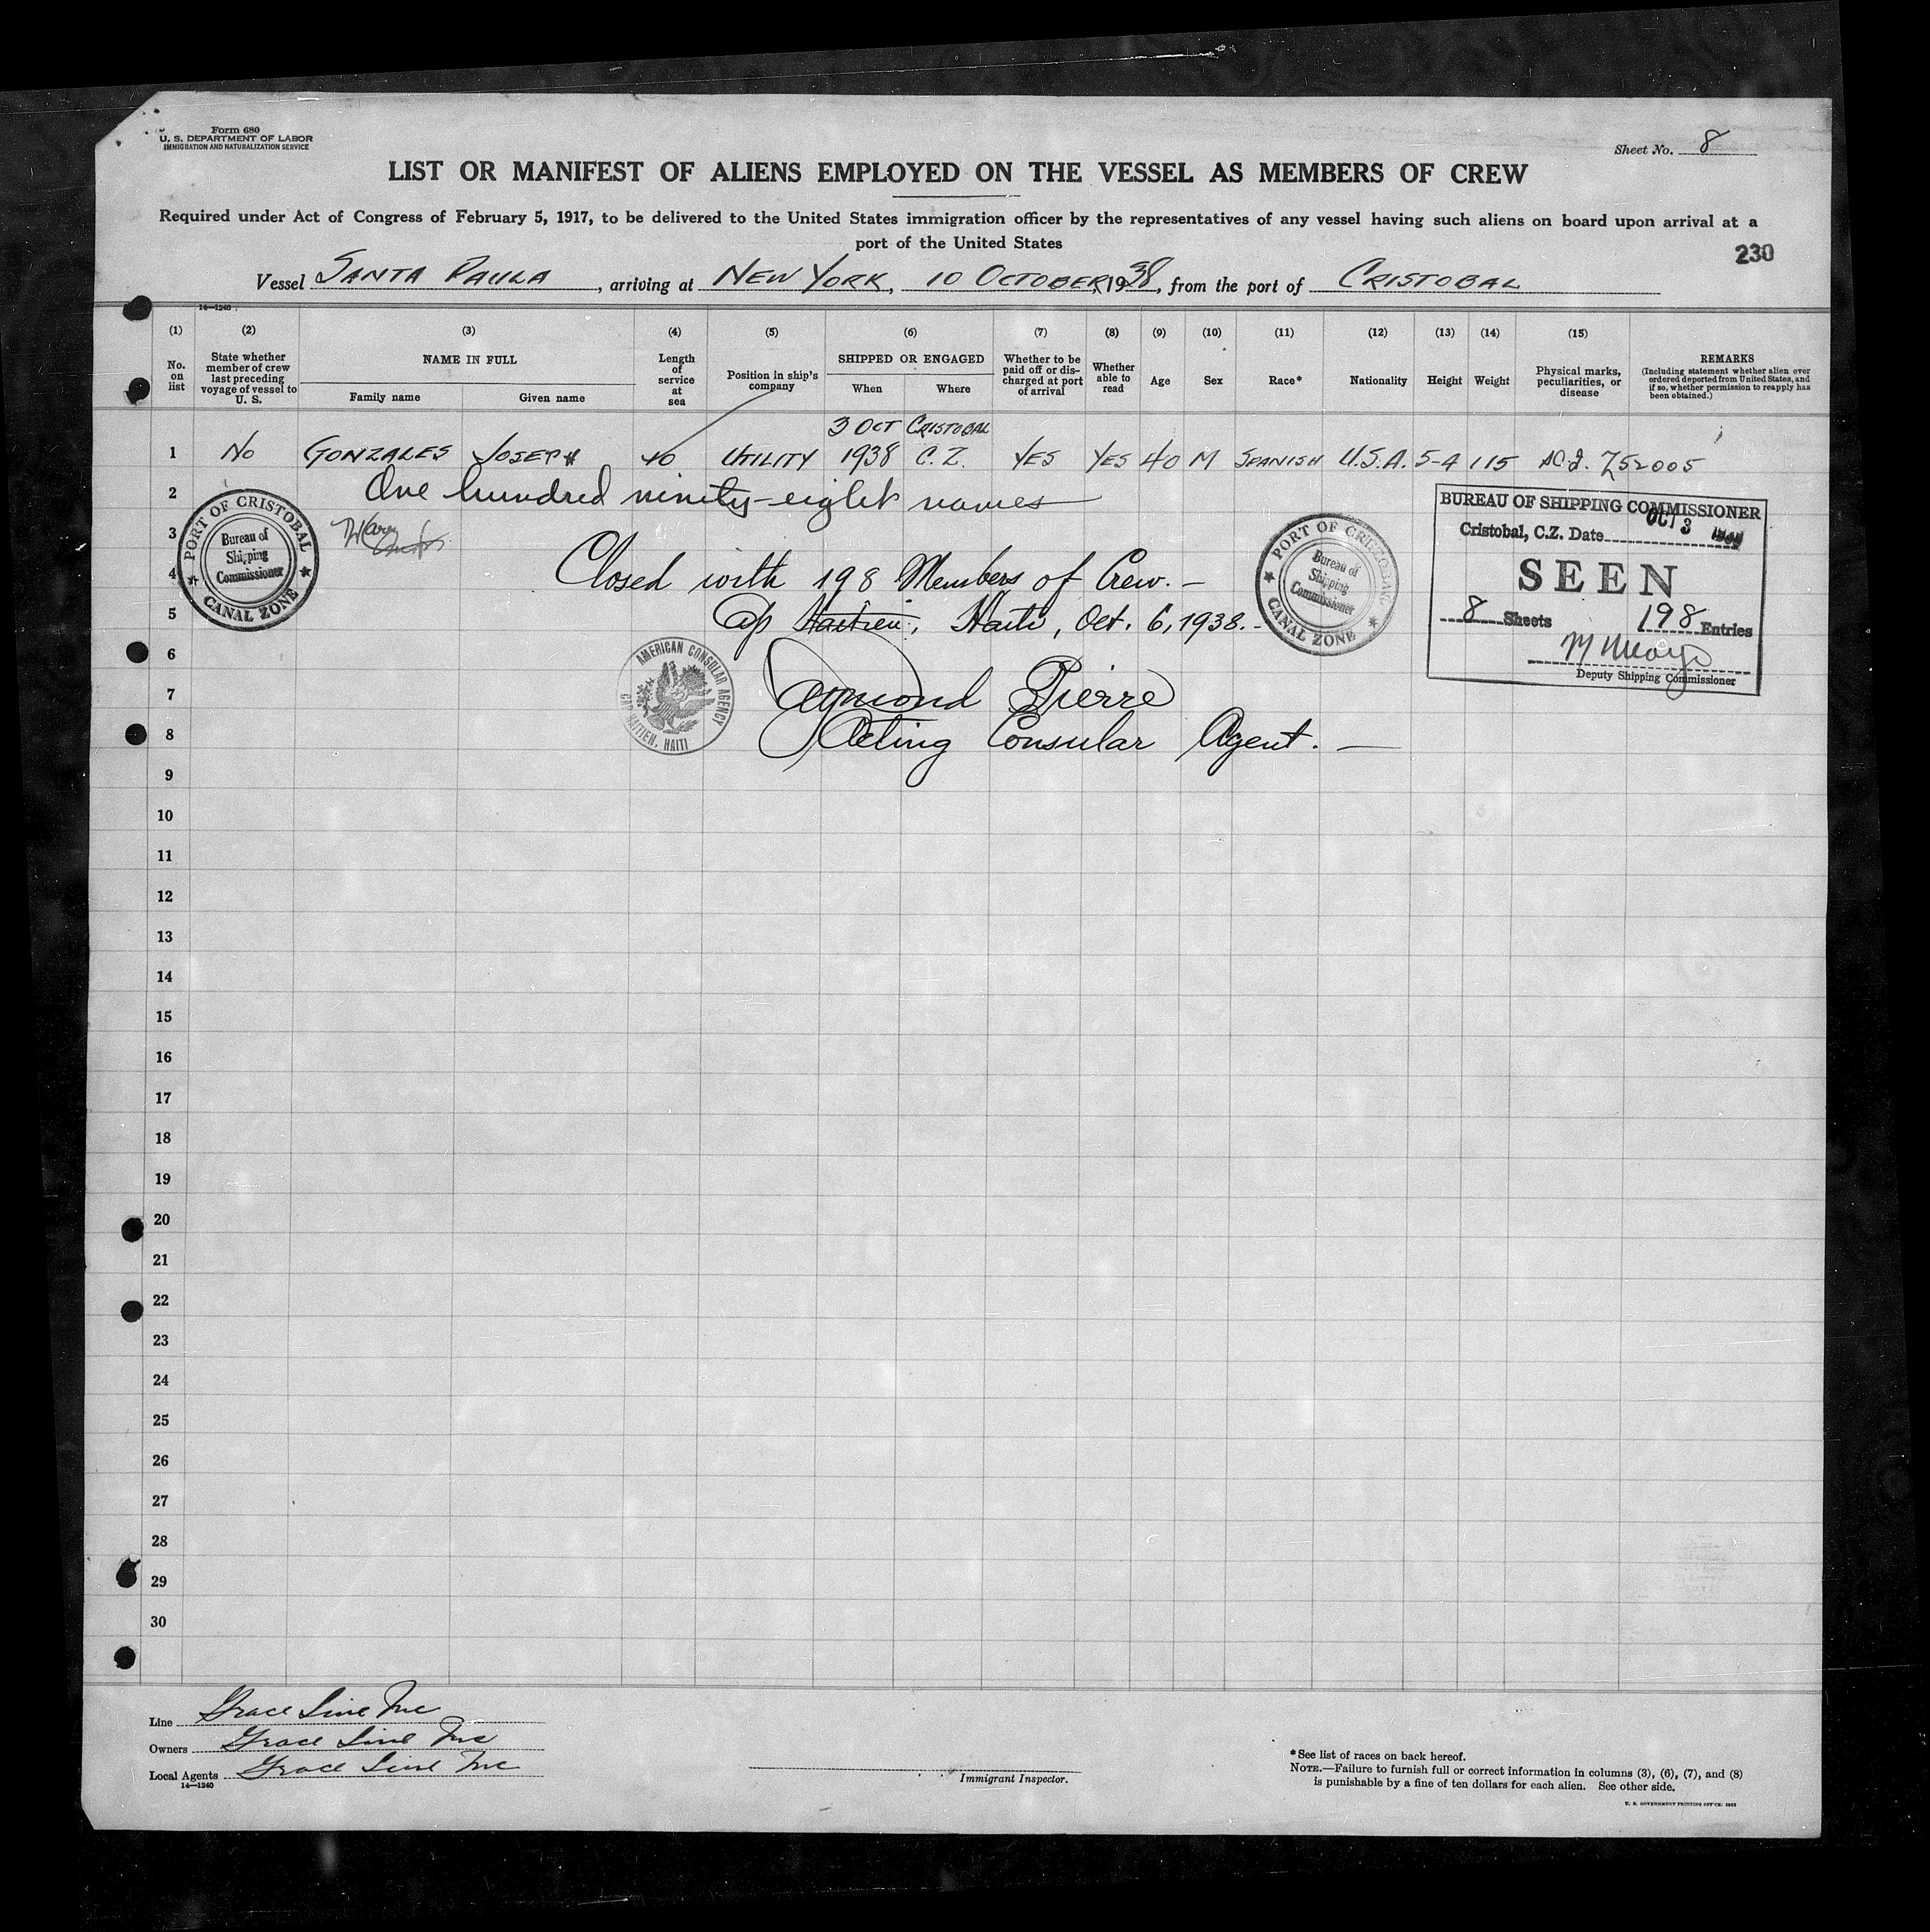 Form 680
U. S. DEPARTMENT OF LABOR
IMMIGRATION AND NATURALIZATION SERVICE
Sheet No. 8
LIST OR MANIFEST OF ALIENS EMPLOYED ON THE VESSEL AS MEMBERS OF CREW
Required under Act of Congress of February 5, 1917, to be delivered to the United States immigration officer by the representatives of any vessel having such aliens on board upon arrival at a
port of the United States
230
Vessel SANTA PAULA, arriving at NEW YORK, 10 OCTOBER, 1938, from the port of CRISTOBAL
14—1240
(1) (2) (3) (4) (5) (6) (7) (8) (9) (10) (11) (12) (13) (14) (15)
No. on list
State whether member of crew last preceding voyage of vessel to U. S.
NAME IN FULL
Family name Given name
Length of service at sea
Position in ship's company
SHIPPED OR ENGAGED
When Where
Whether to be paid off or discharged at port of arrival
Whether able to read
Age
Sex
Race*
Nationality
Height
Weight
Physical marks, peculiarities, or disease
REMARKS
(Including statement whether alien ever ordered deported from United States, and if so, whether permission to reapply has been obtained.)
3 OCT CRISTOBAL
1 NO GONZALES JOSEPH UTILITY 1938 C.Z. YES YES 40 M SPANISH U.S.A. 5-4 115 752005
2 One hundred ninity-eight names
3
4 Closed with 198 Members of Crew. —
5 Cap Haitien, Haiti, Oct. 6, 1938. -
6
7 Pierre
8 Acting Consular Agent. —
PORT OF CRISTOBAL
Bureau of
Shipping
Commissioner
CANAL ZONE
AMERICAN CONSULAR AGENCY
CAP-HAITIEN, HAITI
PORT OF CRISTOBAL
Bureau of
Shipping
Commissioner
CANAL ZONE
BUREAU OF SHIPPING COMMISSIONER
Cristobal, C.Z. Date OCT 3
SEEN
8 Sheets 198 Entries
Deputy Shipping Commissioner
9
10
11
12
13
14
15
16
17
18
19
20
21
22
23
24
25
26
27
28
29
30
Line Grace Line Inc
Owners Grace Line Inc
Local Agents Grace Line Inc
14—1240
Immigrant Inspector.
*See list of races on back hereof.
NOTE.—Failure to furnish full or correct information in columns (3), (6), (7), and (8)
is punishable by a fine of ten dollars for each alien. See other side.